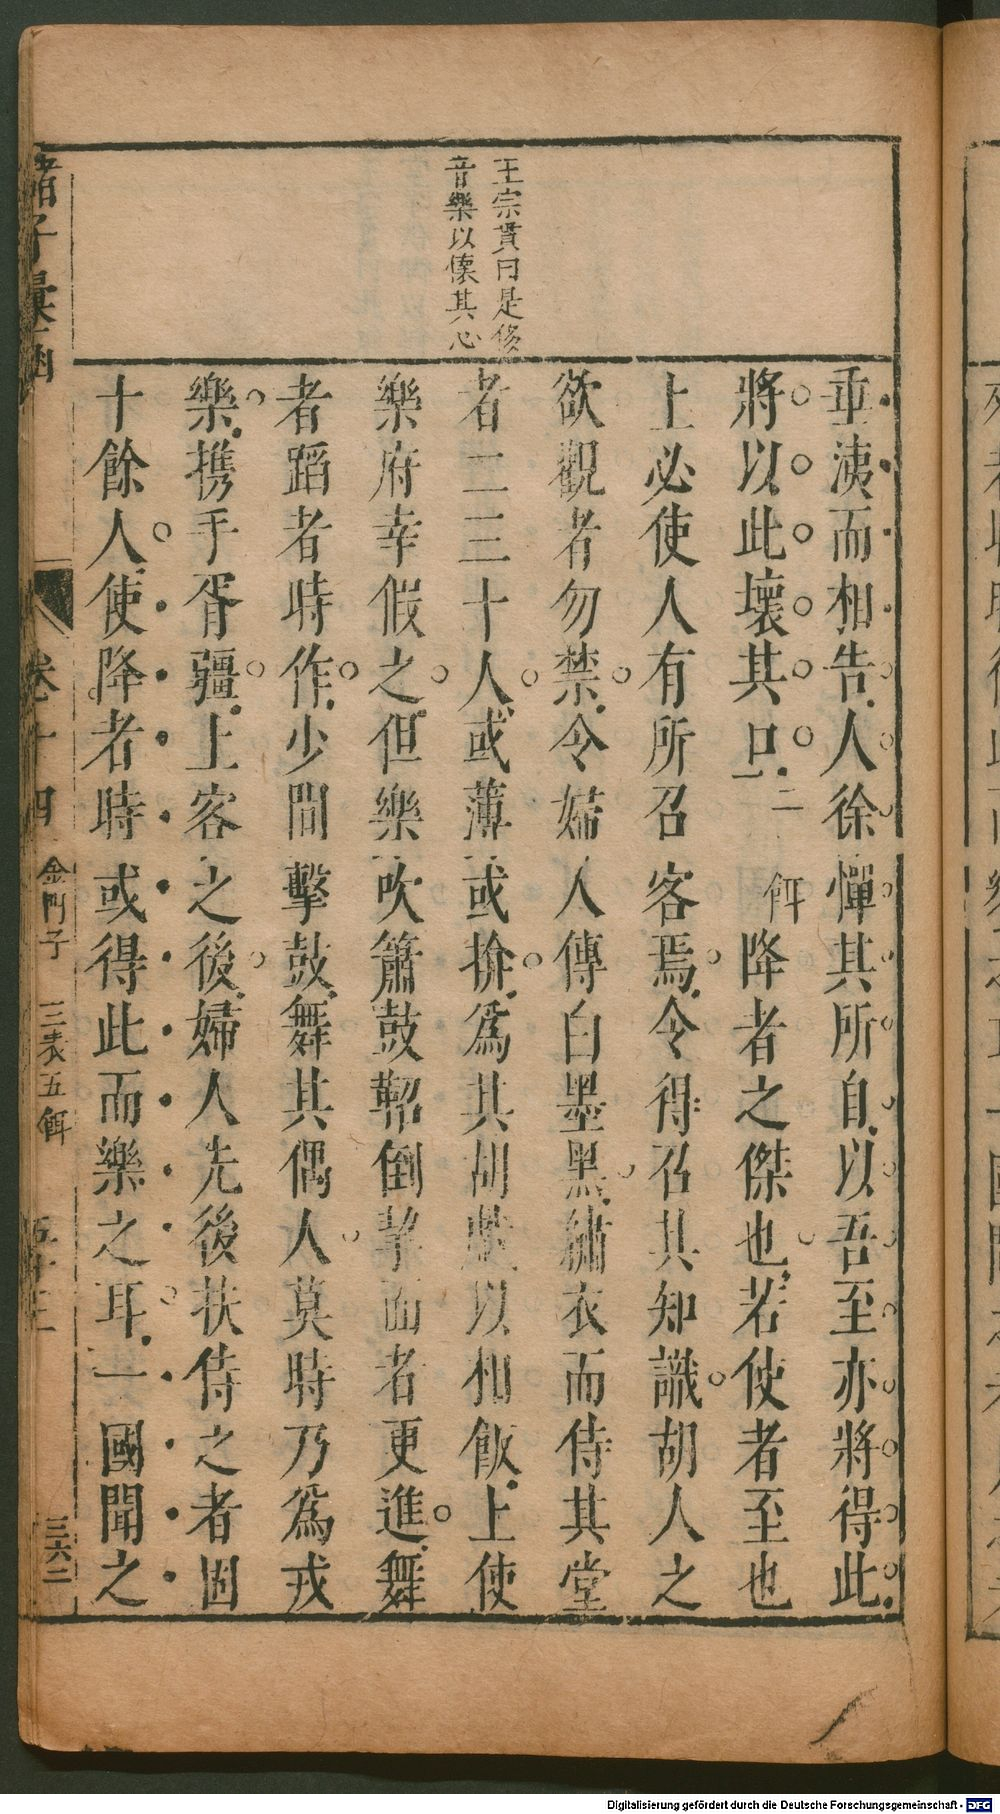 王宗貫曰是侈
音樂以懐其心
垂洟而相告人徐憚其所自以吾至亦將得此
將以此壊其口一二餌降者之傑也若使者至也
上必使人有所召客焉令得召其知識胡人之
欲觀者勿禁令婦人傳白墨黑繡衣而侍其堂
者二三十人或薄或揜爲其胡戲以相飯上使
樂府幸假之但樂吹簫鼓鞀倒挈面者更進舞
者蹈者時作少間擊鼓舞其偶人莫時乃爲戎
樂携手胥疆上客之後婦人先後扶侍之者固
十餘人使降者時或得此而樂之耳一國聞之
諸子彙函
卷十四
金門子
三表五餌
五十三
三六二
Digitalisierung gefördert durch die Deutsche Forschungsgemeinschaft - DFG